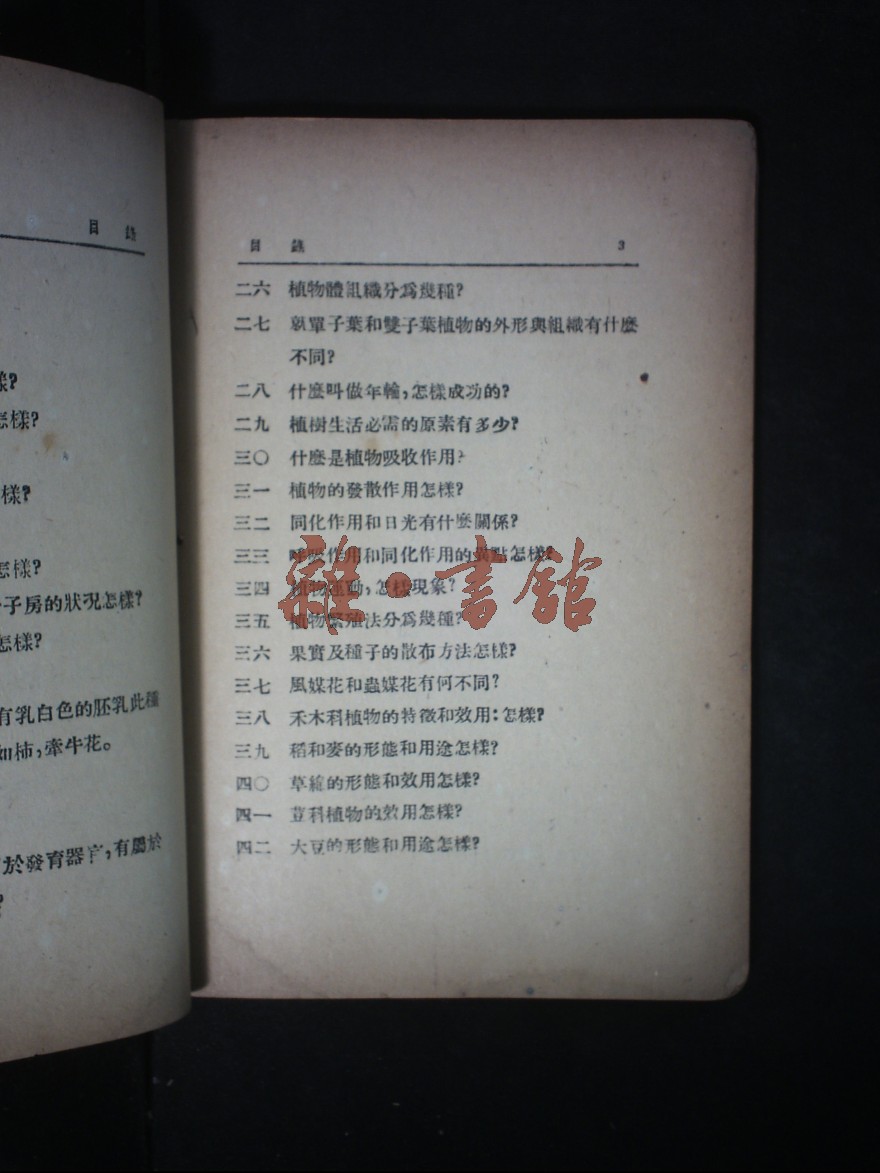 目 錄
樣?
怎樣?
樣?
怎樣?
子房的狀況怎樣?
怎樣?
有乳白色的胚乳此種
如柿,牽牛花。
於發育器官,有屬於
?
目 錄 3
二六 植物體組織分為幾種?
二七 就單子葉和雙子葉植物的外形與組織有什麼
不同?
二八 什麼叫做年輪,怎樣成功的?
二九 植樹生活必需的原素有多少?
三〇 什麼是植物吸收作用?
三一 植物的發散作用怎樣?
三二 同化作用和日光有什麼關係?
三三 呼吸作用和同化作用的異點怎樣?
三四 植物運動,怎樣現象?
三五 植物繁殖法分為幾種?
三六 果實及種子的散布方法怎樣?
三七 風媒花和蟲媒花有何不同?
三八 禾木科植物的特徵和效用:怎樣?
三九 稻和麥的形態和用途怎樣?
四〇 草綿的形態和效用怎樣?
四一 荳科植物的效用怎樣?
四二 大豆的形態和用途怎樣?
雜·書館